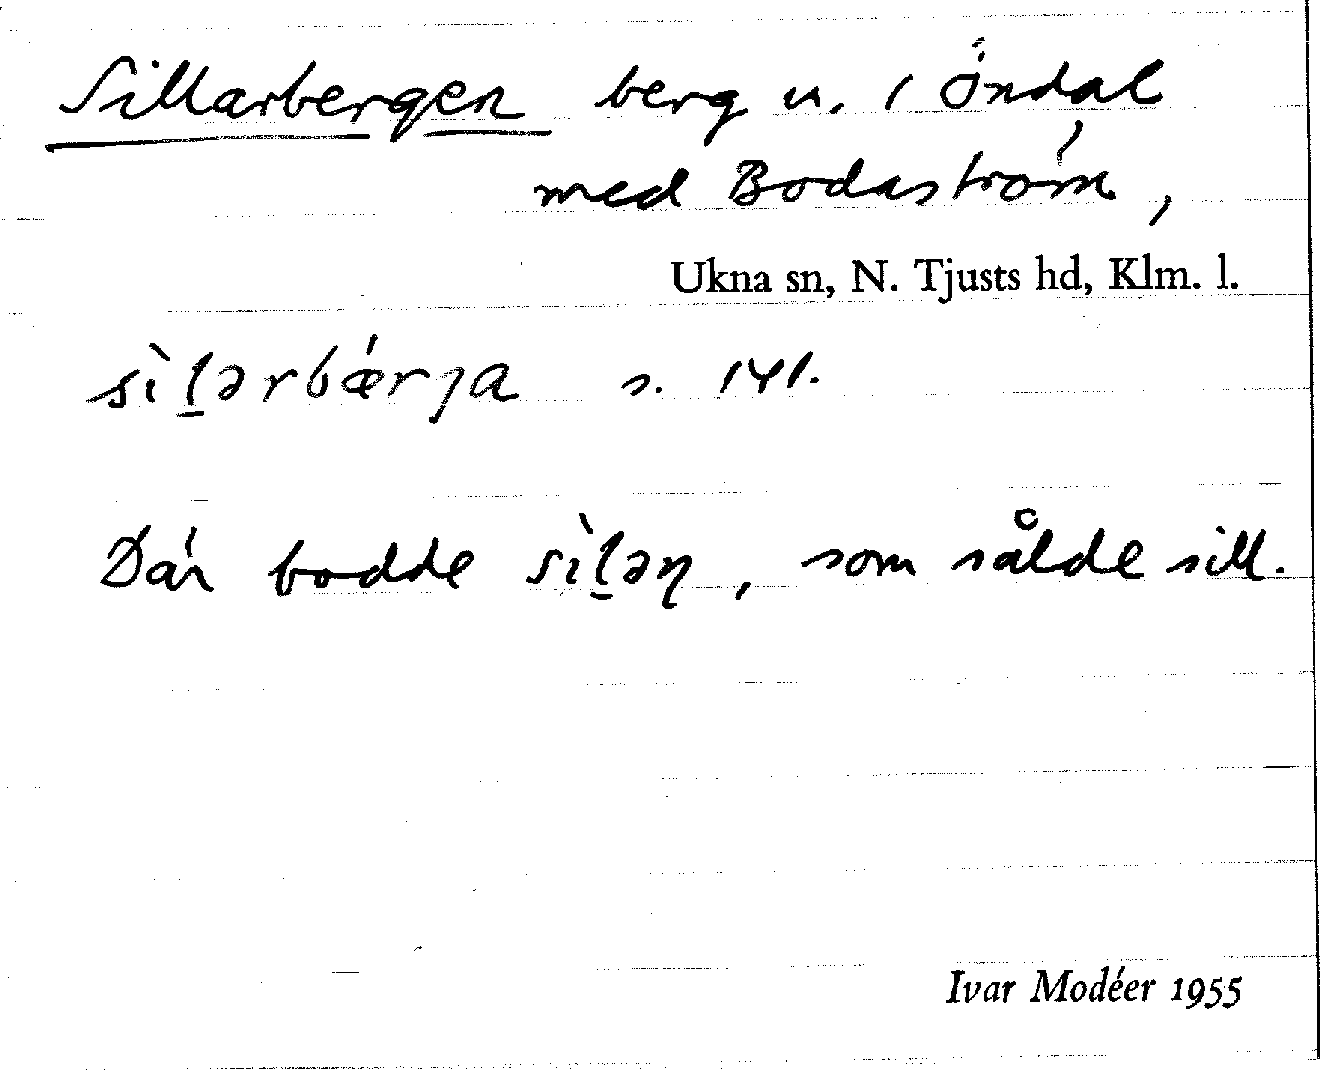 Sillarbergen berg u. i Öndal
med Bodaström,
Ukna sn, N. Tjusts hd, Klm. l.
sìl̲ərbǽrȷa s. 141.
Där bodde sìl̲əɳ, som sålde sill.
Ivar Modéer 1955